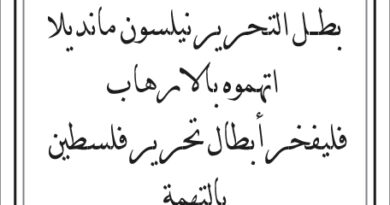 بطل التحرير نيلسون مانديلا
اتهموه بالارهاب
فليفخر أبطال تحرير فلسطين
بالتهمة